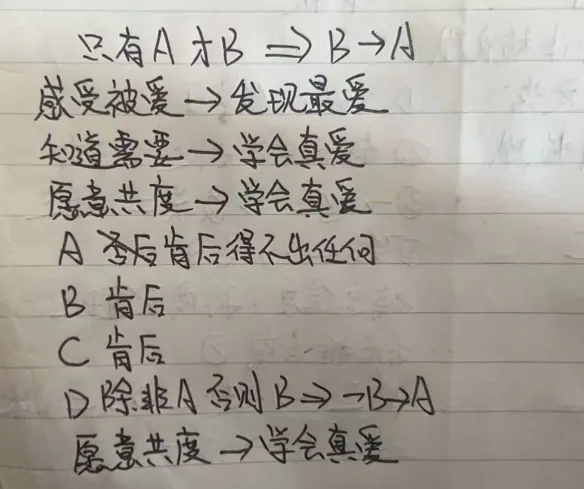 只有A才B ⇒ B→A
感受被爱→发现最爱
知道需要→学会真爱
愿意共度→学会真爱
A 否后肯后得不出任何
B 肯后
C 肯后
D 除非A否则B⇒¬B→A
愿意共度→学会真爱